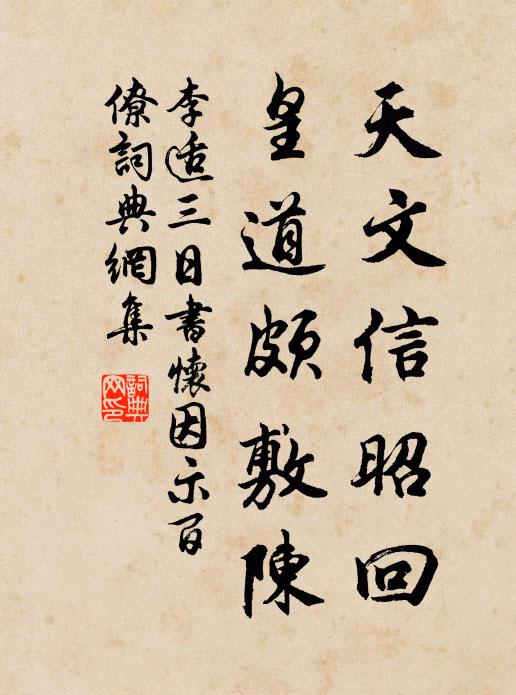 天文信昭回
皇道頗敷陳
李适三日書懷因示百
僚詞典網集
詞典
网印